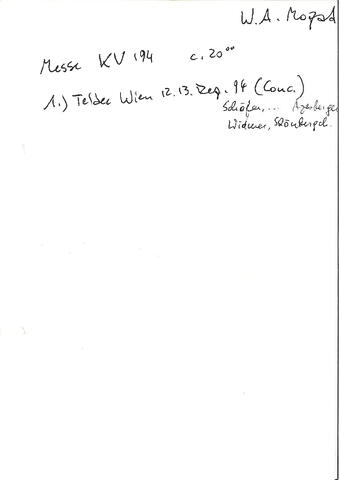 W. A. Mozart
Messe KV 194 c. 20⁰⁰
1.) Teldec Wien 12. 13. Dez. 94 (Conc.)
Schäfer, ... Azesberger
Widmer, Schönbergch.